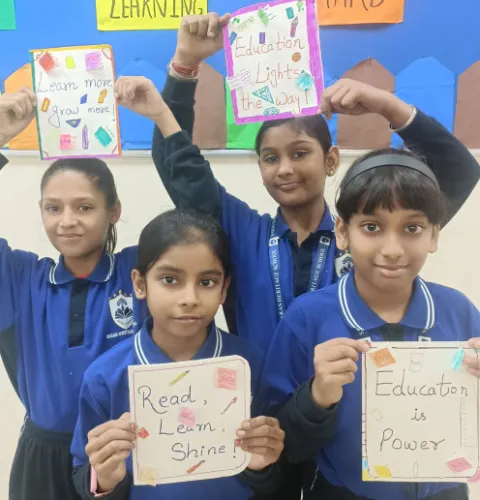 LEARNING
HARD
Learn more
grow more!
Education
Lights
the way!
Read,
Learn,
Shine!
Education
is
Power
HERITAGE SCHOOL